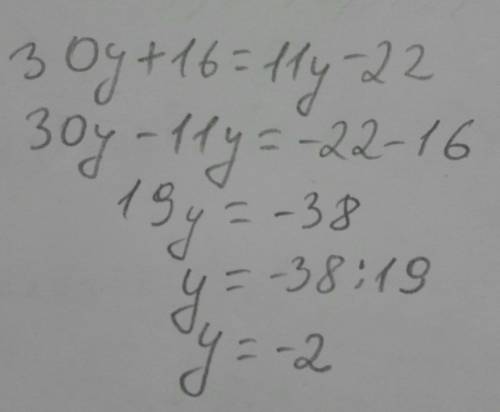 30y+16=11y-22
30y-11y=-22-16
19y=-38
y=-38:19
y=-2